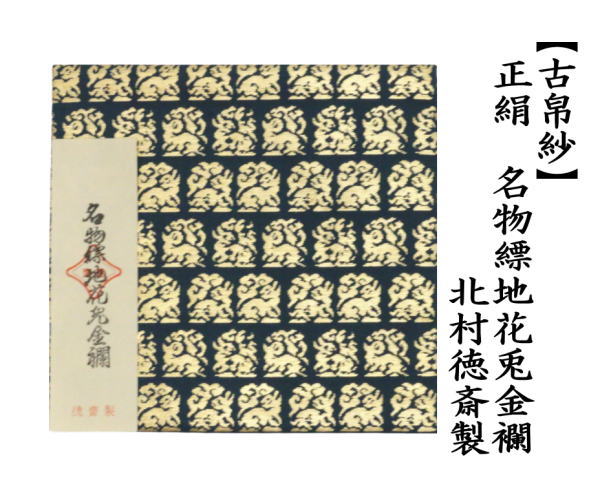 【古帛紗】
正絹　名物縹地花兎金襴
北村徳斎製
名物縹地花兎金襴
徳斎製